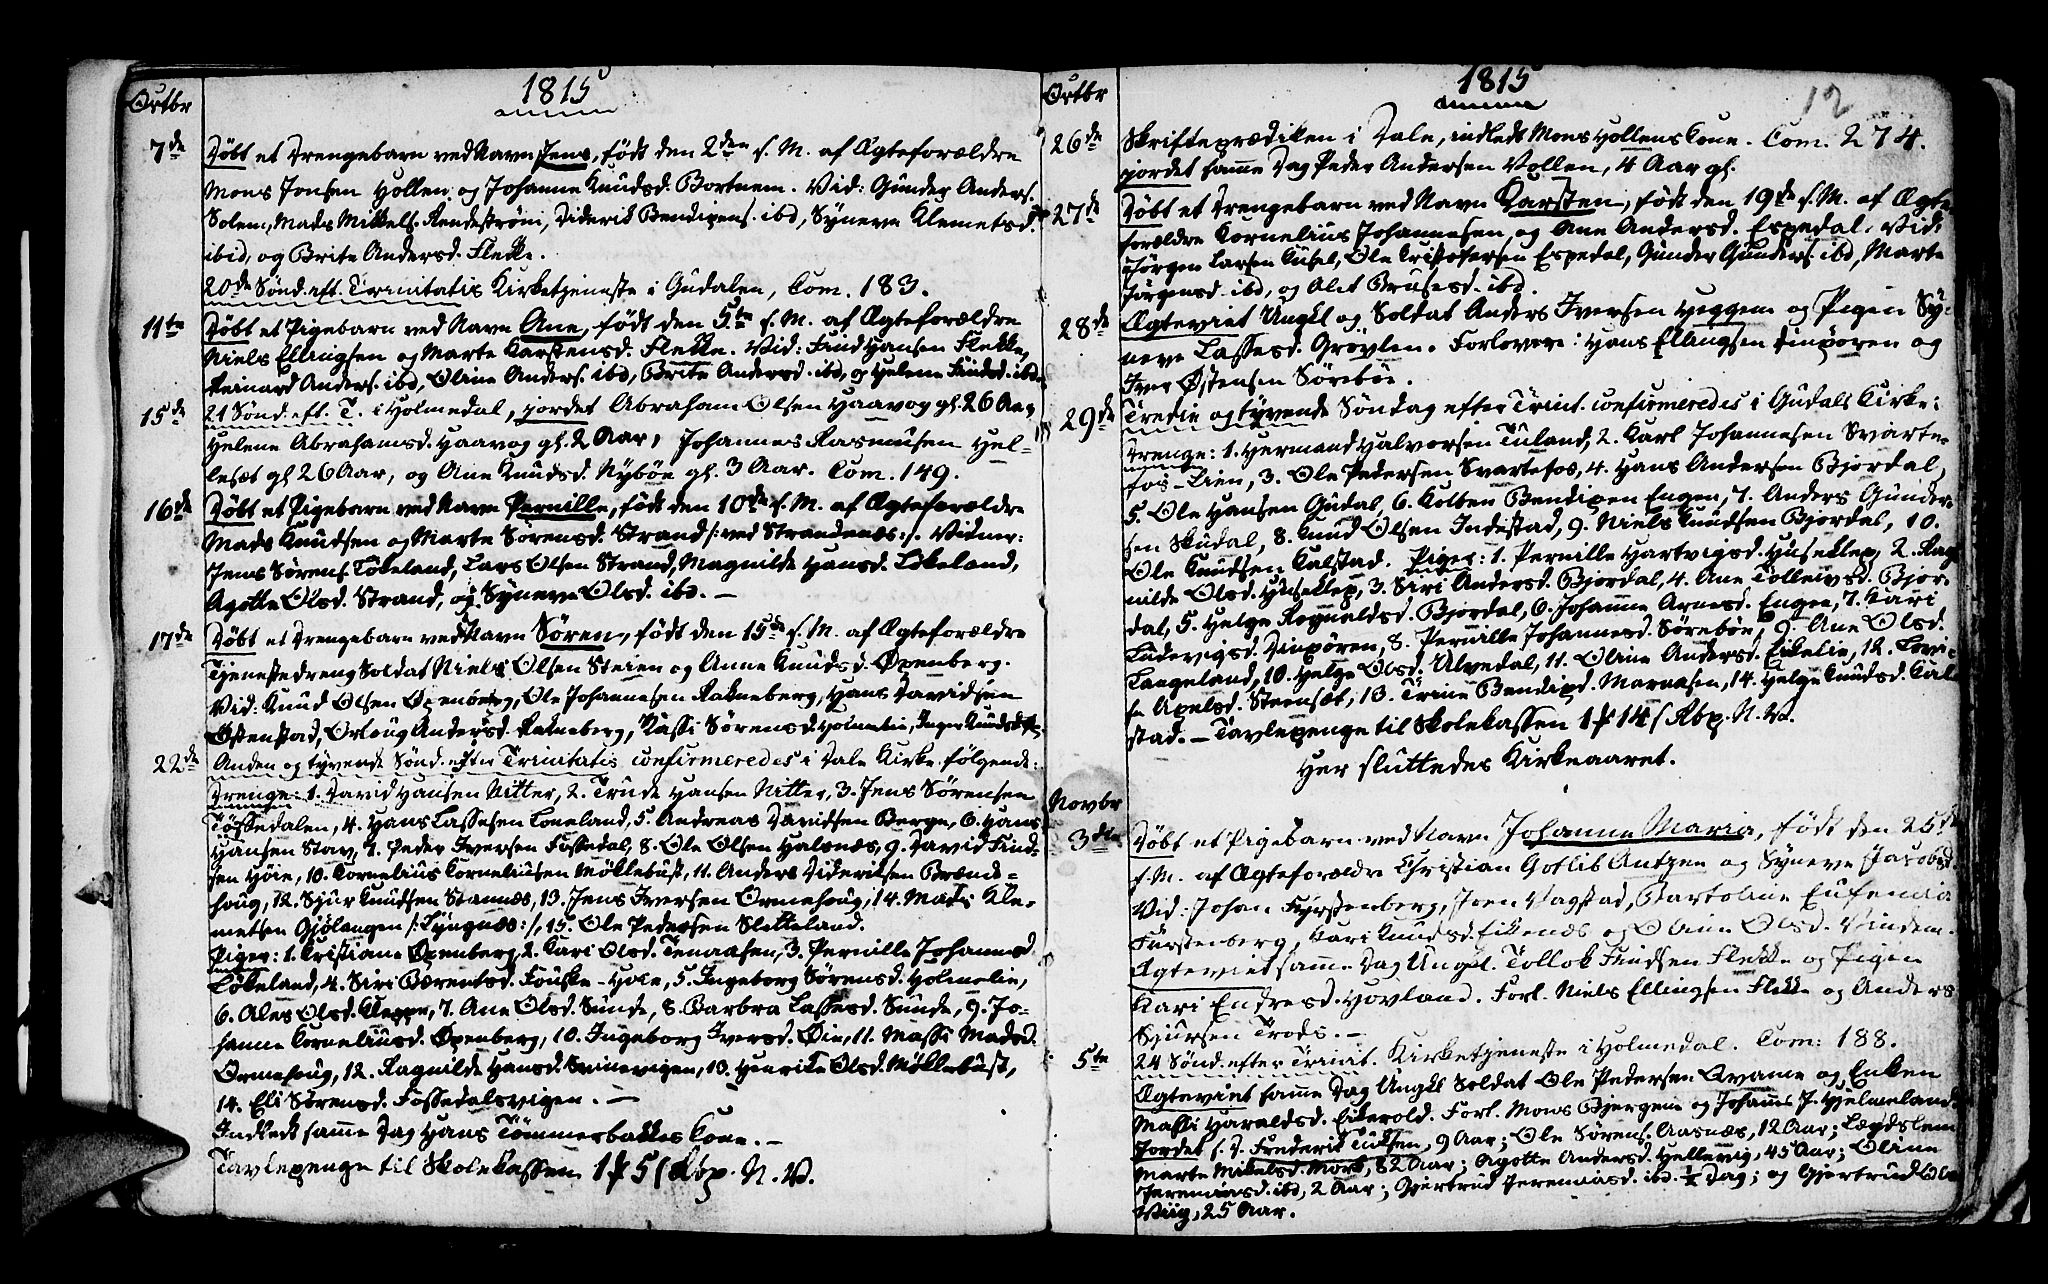 1815
Octbr
7de Døbt et Drengebarn ved Navn Jens, født den 2den s. M. af Ægteforældre
Mons Jonsen Hollen og Johanne Knudsd. Bortnem. Vid: Gunder Anders.
Solem, Mads Mikkels. Rendeström, Diderik Bendixens. ibd, Synneve Klemetsd.
ibid, og Brite Andersd. Flekke.
20de Sønd. eft. Trinitatis Kirketjeneste i Gudalen, Com. 183.
11te Døbt et Pigebarn ved Navn Ane, født den 5te s. M. af Ægteforældre
Niels Ellingsen og Marte Karstensd. Flekke. Vid: Find Hansen Flekke,
Reinard Anders. ibd, Oline Anders. ibd, Brite Andersd. ibd, og Helene Findsd. ibd.
15de 21 Sønd. eft. T. i Holmedal, jordet Abraham Olsen Haavog gl. 26 Aar,
Helene Abrahamsd. Haavog gl. 2 Aar, Johannes Rasmusen Hel-
lesæt gl 26 Aar, og Ane Knudsd. Nybøe gl. 3 Aar. Com. 149.
16de Døbt et Pigebarn ved Navn Pernille, født den 10de s. M. af Ægteforældre
Mads Knudsen og Marte Sørensd. Strand /: ved Strandenæs :/. Vidner:
Jens Sørens. Lökeland, Lars Olsen Strand, Magnilde Hansd. Lökeland,
Agotte Olsd. Strand, og Synneve Olsd. ibd. —
17de Døbt et Drengebarn ved Navn Sören, født den 15de s. M. af Ægteforældre
Tjenestedreng Soldat Niels Olsen Steien og Anne Knudsd. Øxenberg.
Vid: Knud Olsen Øxenberg, Ole Johannesen Rakneberg, Hans Davidsen
Østenstad, Orloug Andersd. Rakneberg, Massi Sørensd. Holmelie, Inger Knudsd.
22de Anden og tyvende Sønd. efter Trinitatis confirmeredes i Dale Kirke følgende:
Drenge: 1. David Hansen Nitter, 2. Trude Hansen Nitter, 3. Jens Sørensen
Tössedalen, 4. Hans Lassesen Loneland, 5. Andreas Davidsen Berge, 6. Hans
Hansen Stav, 7. Peder Iversen Fossedal, 8. Ole Olsen Halsnæs, 9. David Find-
sen Høie, 10. Kornelius Korneliusen Möklebust, 11. Anders Dideriksen Brænde-
houg, 12. Sjur Knudsen Stannæs, 13. Jens Iversen Ormehoug, 14. Mads Kle-
metsen Gjølangen /: Lyngnæs :/, 15. Ole Pedersen Sletteland.
Piger: 1. Kristiane Øxenberg, 2. Kari Olsd. Tenaasen, 3. Pernille Johannesd.
Lökeland, 4. Siri Bærentsd. Fouske-Høie, 5. Ingeborg Sørensd. Holmelie,
6. Ales Olsd. Kleppe, 7. Ane Olsd. Sunde, 8. Barbra Lassesd. Sunde, 9. Jo-
hanne Korneliusd. Øxenberg, 10. Ingeborg Iversd. Øie, 11. Massi Madsd.
Ormehoug, 12. Ragnilde Hansd. Svinevigen, 13. Henrike Olsd. Möklebust,
14. Eli Sørensd. Fossedalsvigen. —
Indledt samme Dag Hans Tømmerbakkes Kone. —
Tavlepenge til Skolekassen 1 5 s Rbp. N. V.
1815
12
Octbr
26de Skrifteprædiken i Dale, indledt Mons Hollens Kone. Com. 274.
jordet samme Dag Peder Andersen Vollen, 4 Aar gl.
27de Døbt et Drengebarn ved Navn Karsten, født den 19de s. M. af Ægte
forældre Kornelius Johannesen og Ane Andersd. Espedal. Vid:
Jørgen Larsen Kusel, Ole Kristofersen Espedal, Gunder Gunders. ibd, Marte
Jørgensd. ibd, og Alet Brusesd. ibd.
28de Ægteviet Ungkl og Soldat Anders Iversen Heggem og Pigen Sy-
neve Lassesd. Grövlen. Forlovere: Hans Ellingsen Dinxören og
Iver Østensen Sørebøe.
29de Tredie og tyvende Söndag efter Trint. confirmeredes i Gudals Kirke:
Drenge: 1. Hermand Halvorsen Tuland, 2. Karl Johannesen Svarte-
fos-Lien, 3. Ole Pedersen Svartefos, 4. Hans Andersen Bjordal,
5. Ole Hansen Gudal, 6. Kolben Bendixen Engen, 7. Anders Gunder-
sen Skudal, 8. Knud Olsen Indestad, 9. Niels Knudsen Bjordal, 10.
Ole Knudsen Kalstad. Piger: 1. Pernille Hartvigsd. Huseklep, 2. Rag
nilde Olsd. Huseklep, 3. Siri Andersd. Bjordal, 4. Ane Tolleivsd. Bjor-
dal, 5. Helge Rognaldsd. Bjordal, 6. Johanne Arnesd. Engen, 7. Kari
Ludevigsd. Dinxören, 8. Pernille Johannesd. Sørebøe, 9. Ane Olsd.
Langeland, 10. Helge Olsd. Ulvedal, 11. Oline Andersd. Eikelie, 12. Lovi-
se Axelsd. Steensæt, 13. Trine Bendixd. Mareaasen, 14. Helge Knudsd. Kal
stad. — Tavlepenge til Skolekassen 1 14 s Rbp. N. V.
Her sluttedes Kirkeaaret.
Novbr
3die Døbt et Pigebarn ved Navn Johanne Maria, født den 25de
f. M. af Ægteforældre Christian Gotlib Antzen og Synneve Jacobsd.
Vid: Johan Fyrstenberg, Joen Vagstad, Bartoline Eufemia
Fürstenberg, Kari Knudsd. Eikenæs og Oline Olsd. Vindem.
Ægteviet samme Dag Ungk. Tollok Findsen Flekke og Pigen
Kari Endresd. Hovland. Forl. Niels Ellingsen Flekke og Anders
Sjursen Trods. —
5te 24 Sønd. efter Trinit. Kirketjeneste i Holmedal. Com: 188.
Ægteviet samme Dag Ungkl Soldat Ole Pedersen Qvame og Enken
Massi Haraldsd. Eikevold. Forl. Mons Bjergene og Johannes J. Hjelmeland.
Jordet s. D. Frederik Tuksen, 9 Aar; Ole Sørens. Aasnæs, 12 Aar; Lægdslem
Marte Mikelsd. Mork, 82 Aar; Agotte Andersd. Hellevig, 45 Aar; Oline
Jeremiasd. ibd, 2 Aar; Gjertrud Jeremiasd. ibd. ½ Dag; og Gjertrud Ols
Viig, 25 Aar.